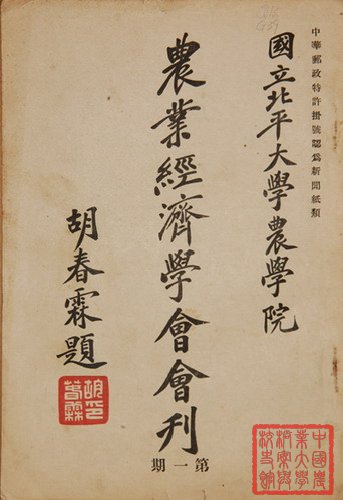 中華郵政特許掛號認爲新聞紙類
國立北平大學農學院
農業經濟學會會刊
第一期
胡春霖題
胡春霖印
中國農業大學檔案與校史館